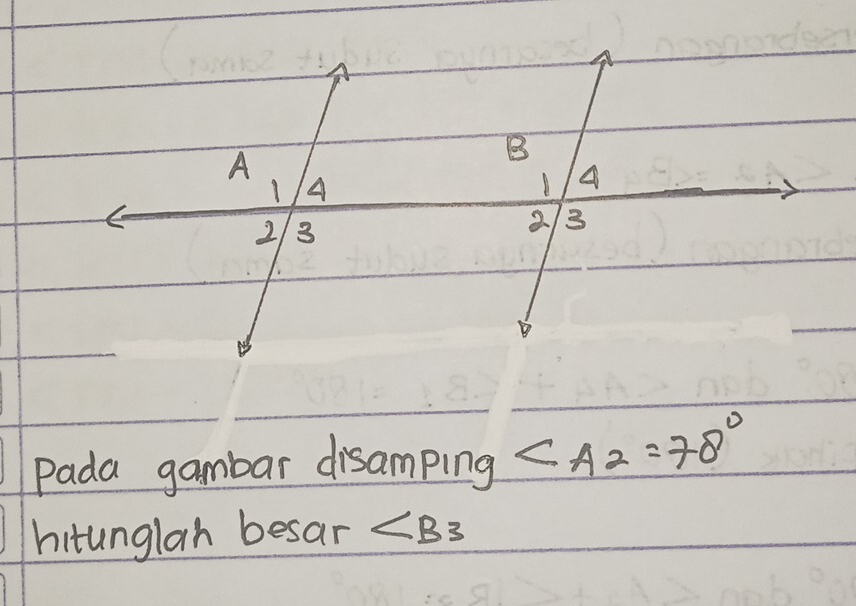 A
B
1 4
1 4
2 3
2 3
Pada gambar disamping < A2 = 78°
hitunglah besar <B3